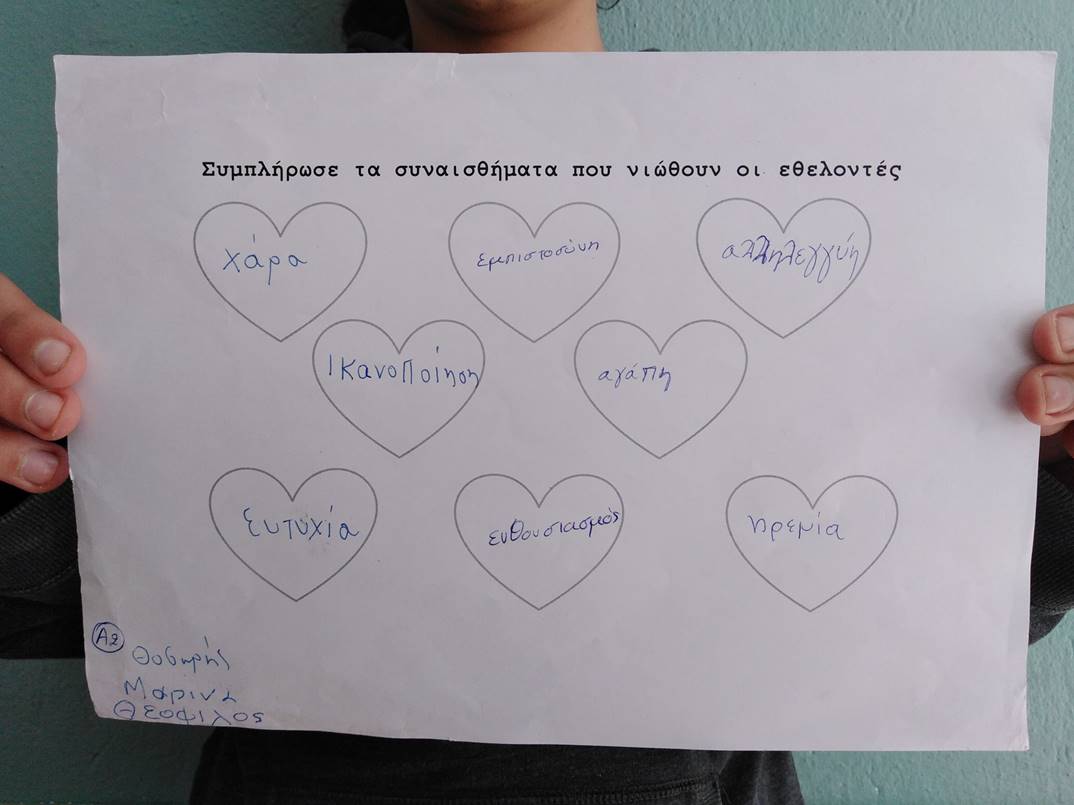 Συμπλήρωσε τα συναισθήματα που νιώθουν οι εθελοντές
χάρα εμπιστοσύνη αλληλεγγύη
Ικανοποίηση αγάπη
Ευτυχία ενθουσιασμός ηρεμία
Α2
Μαρινα
Θεοφιλος